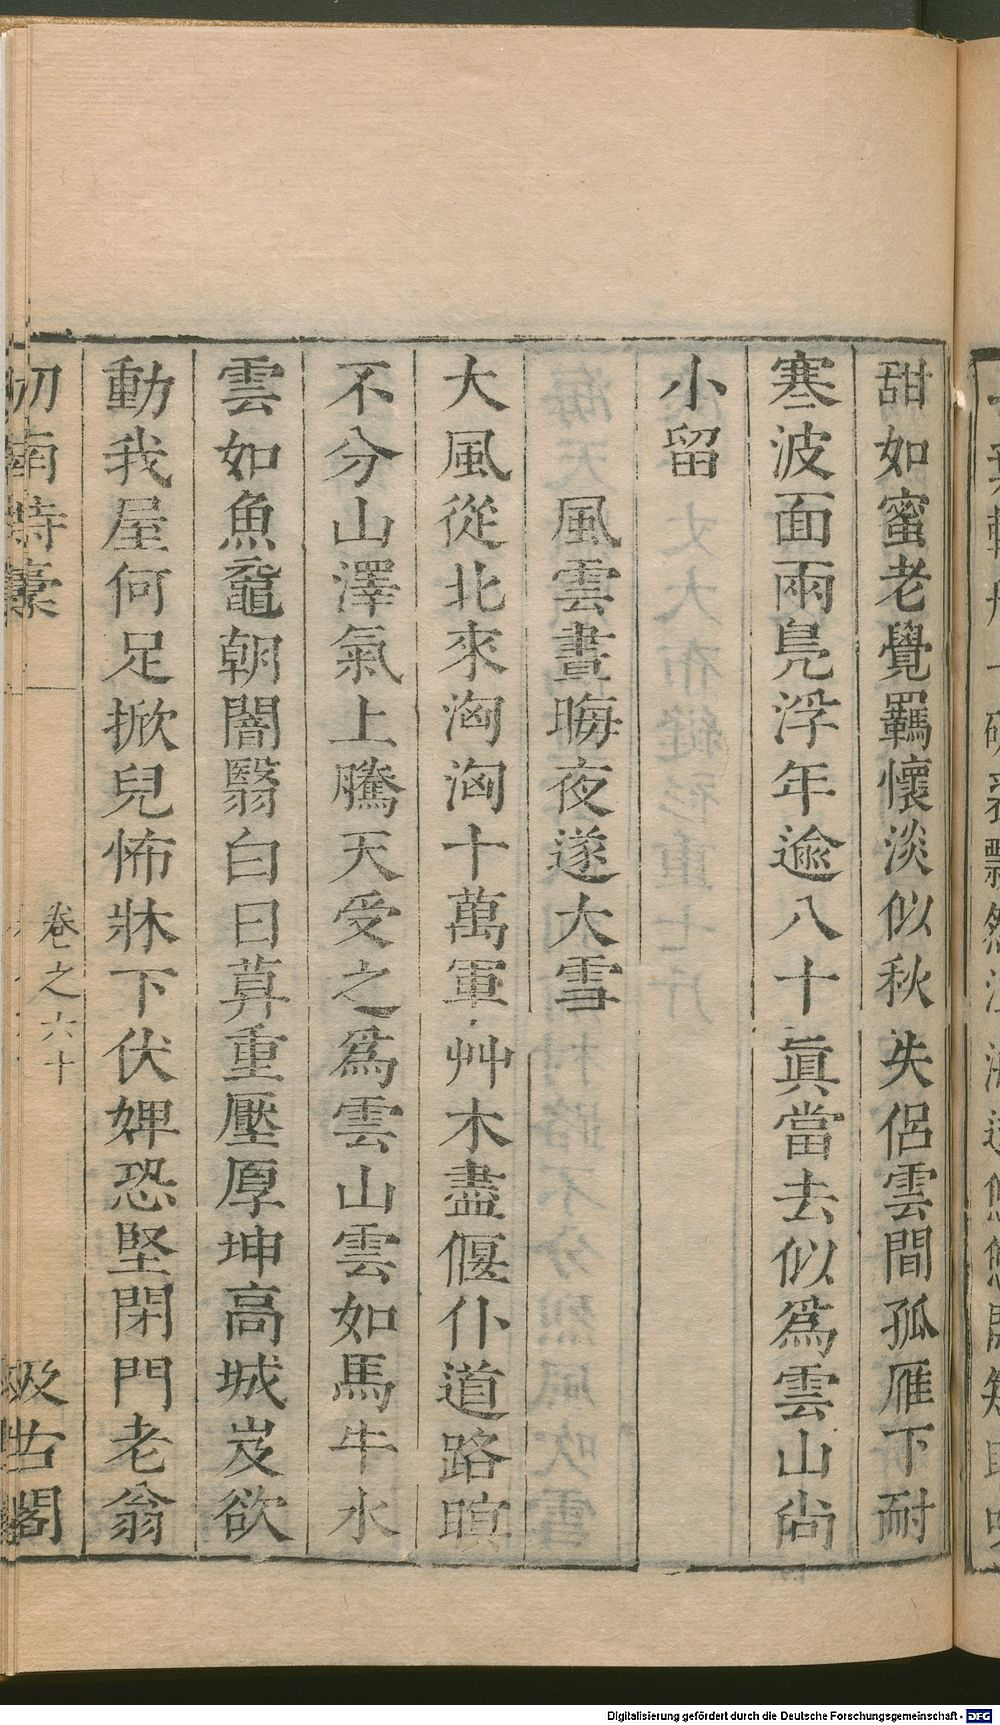 甜如蜜老覺羈懷淡似秋失侶雲間孤雁下耐
寒波面兩鳧浮年逾八十眞當去似爲雲山尚
小留
風雲晝晦夜遂大雪
大風從北來洶洶十萬軍艸木盡偃仆道路暝
不分山澤氣上騰天受之爲雲山雲如馬牛水
雲如魚黿朝闇翳白日暮重壓厚坤高城岌欲
動我屋何足掀兒怖牀下伏婢恐堅閉門老翁
劒南詩稾
卷之六十
汲古閣
Digitalisierung gefördert durch die Deutsche Forschungsgemeinschaft - DFG